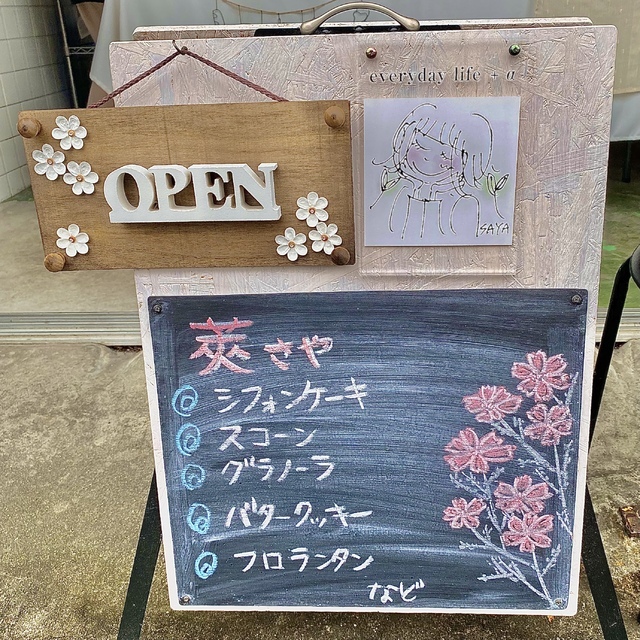 everyday life + α
OPEN
SAYA
莢さや
シフォンケーキ
スコーン
グラノーラ
バタークッキー
フロランタン
など